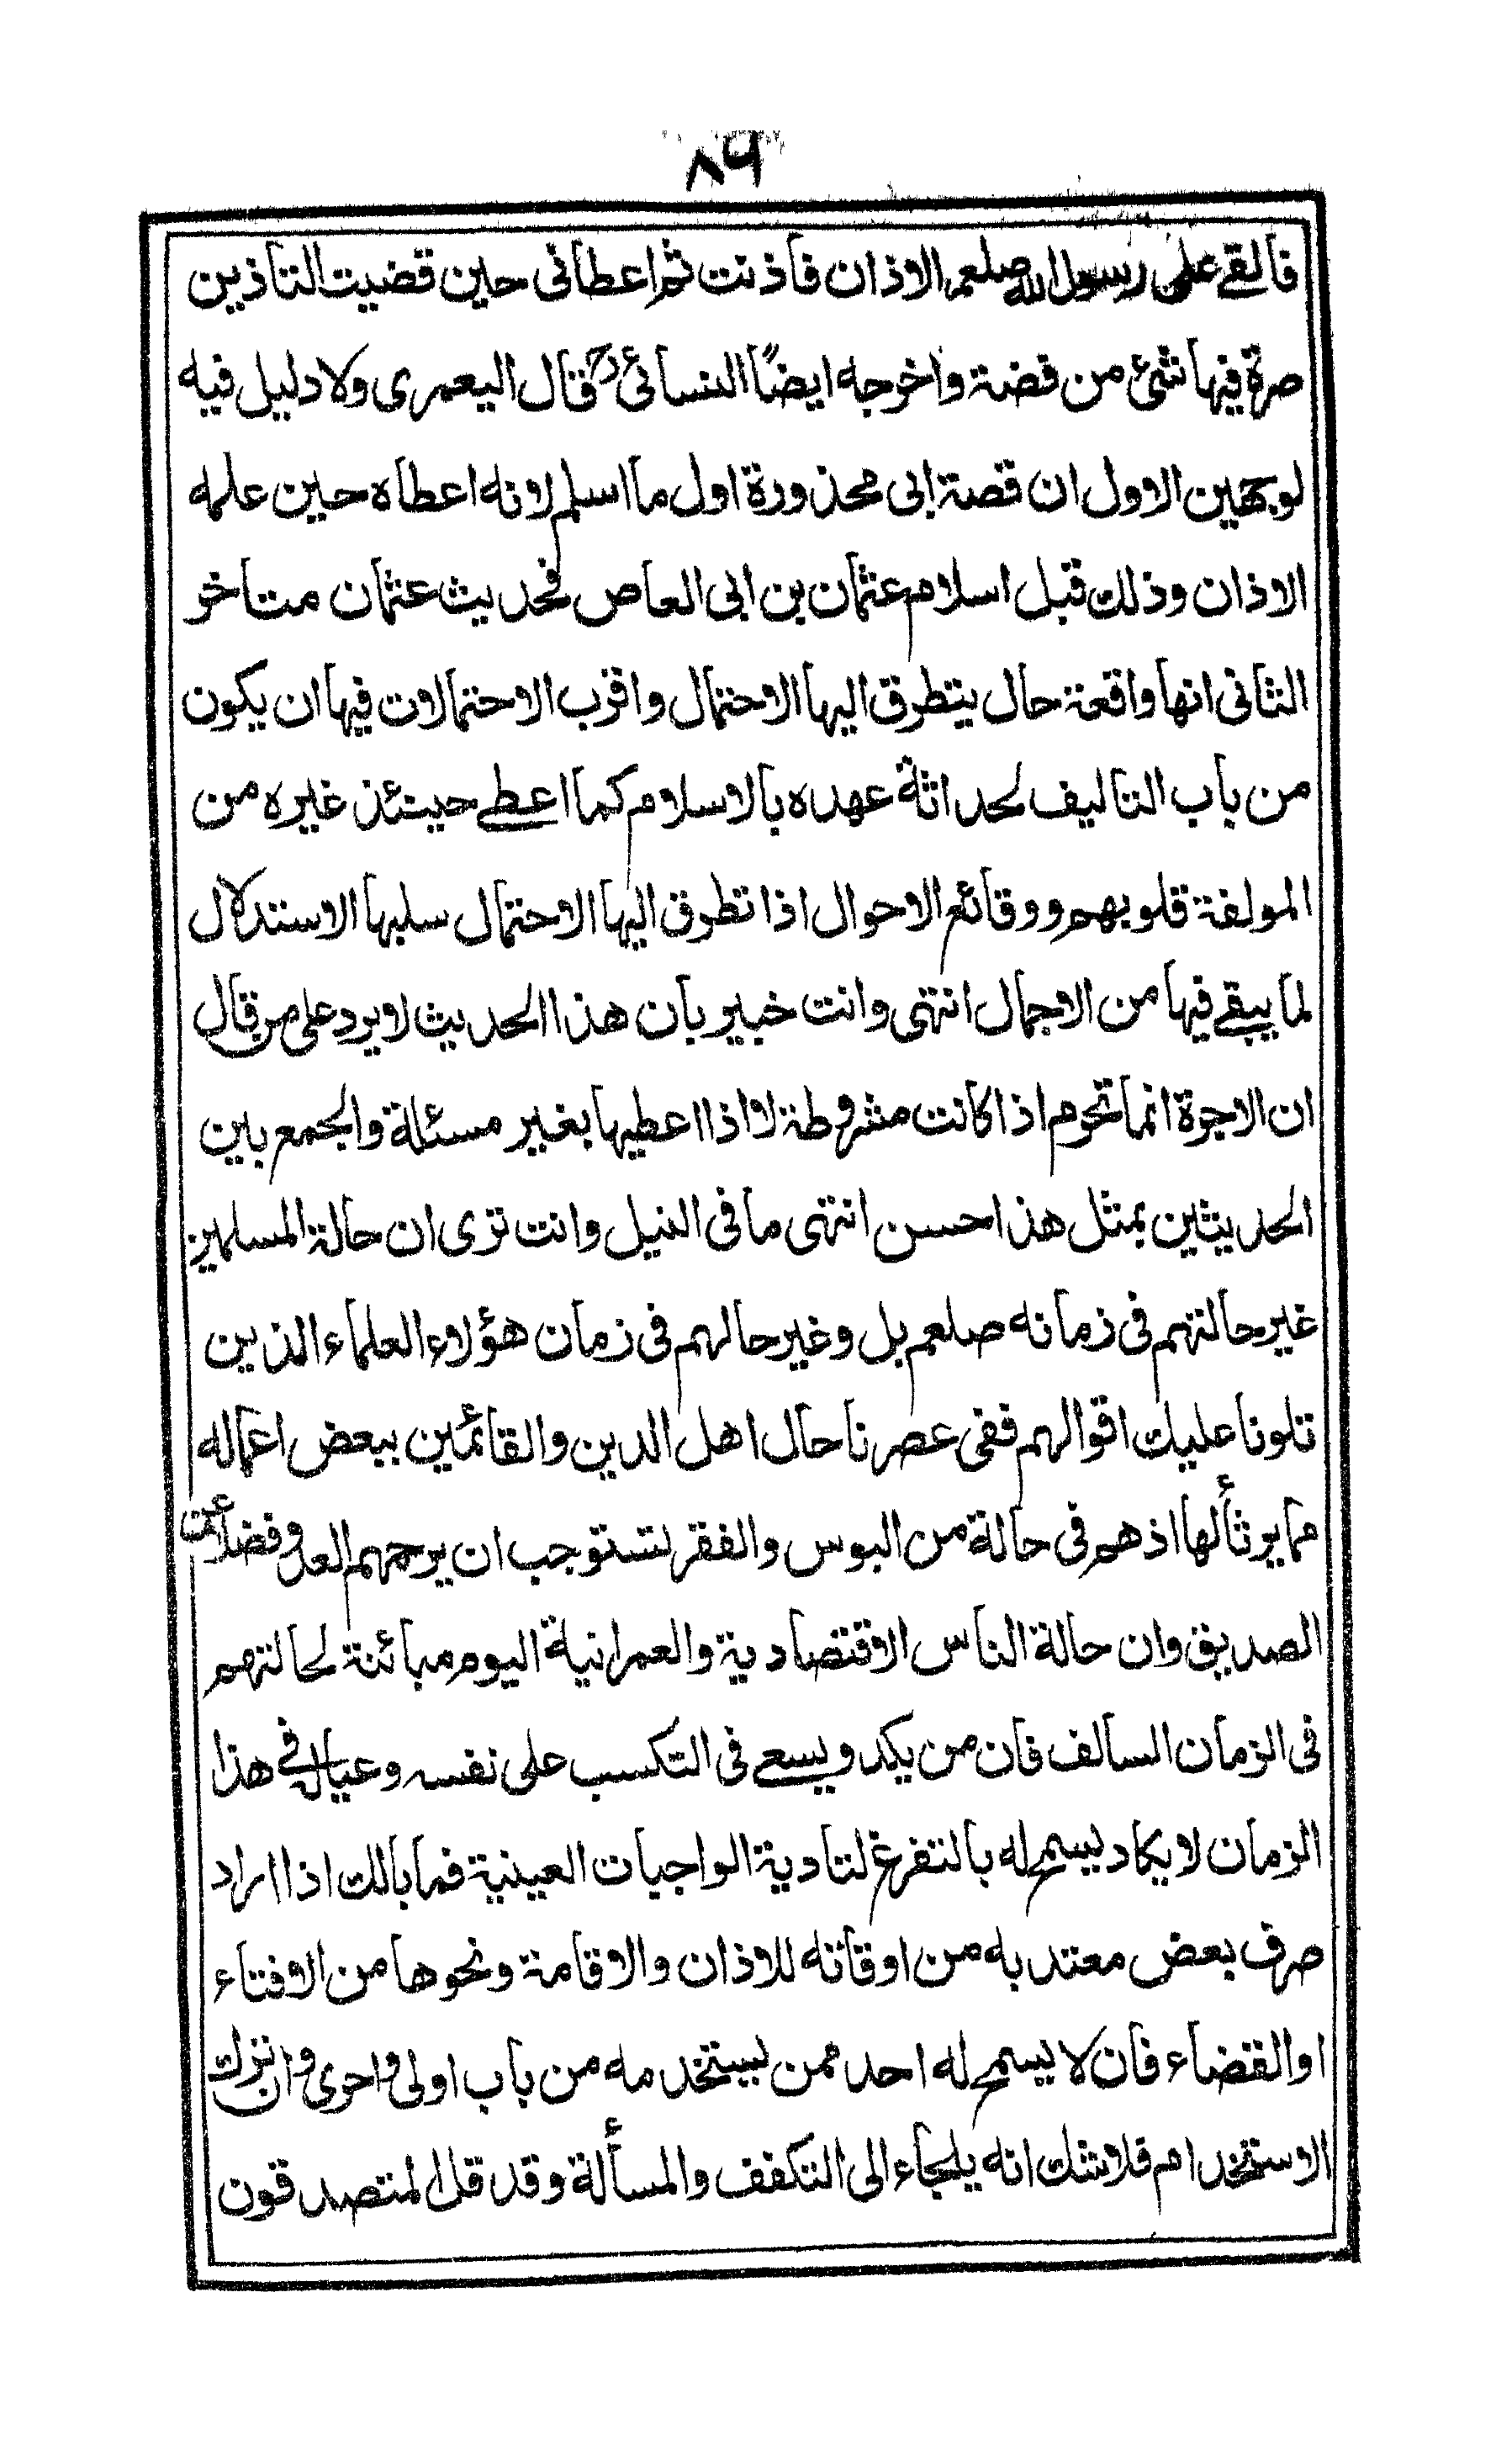 ٨٦
فالقے علی رسول الله صلعم الاذان فاذنت ثم اعطانی حین قضیت التاذین
صرة فیها شئ من فضة واخرجه ایضًا النسائی قال الیعمری ولا دلیل فیه
لوجهین الاول ان قصة ابی محذورة اول ما اسلم لانه اعطاه حین علمه
الاذان وذلك قبل اسلام عثمان بن ابی العاص فحدیث عثمان متاخر
الثانی انها واقعة حال یتطرق الیها الاحتمال واقرب الاحتمالات فیها ان یکون
من باب التالیف لحداثة عهده بالاسلام کما اعطے حینئذ غیره من
المولفة قلوبهم ووقائع الاحوال اذا تطرق الیها الاحتمال سلبها الاستدلال
لما یبقے فیها من الاجمال انتهی وانت خبیر بان هذا الحدیث لا یرد علی من قال
ان الاجرة انما تحرم اذا کانت مشروطة لا اذا اعطیها بغیر مسئلة والجمع بین
الحدیثین بمثل هذا احسن انتهی ما فی النیل وانت تری ان حالة المسلمین
غیر حالتهم فی زمانه صلعم بل وغیر حالهم فی زمان هؤلاء العلماء الذین
تلونا علیك اقوالهم ففی عصرنا حال اهل الدین والقائمین ببعض اعماله
مما یرثألها اذ هم فی حالة من البوس والفقر تستوجب ان یرحمهم العدو فضلا عن
الصدیق وان حالة الناس الاقتصادیة والعمرانیة الیوم مبائنة لحالتهم
فی الزمان السالف فان من یکد ویسعے فی التکسب علی نفسه وعیاله فی هذا
الزمان لا یکاد یسمح له بالتفرغ لتادیة الواجبات العینیة فما بالك اذا اراد
صرف بعض معتد به من اوقاته للاذان والاقامة ونحوها من الافتاء
او القضاء فان لا یسمح له احد ممن یستخدمه من باب اولی واحری وان ترك
الاستخدام فلا شك انه یلجاء الی التکفف والمسألة وقد قل المتصدقون